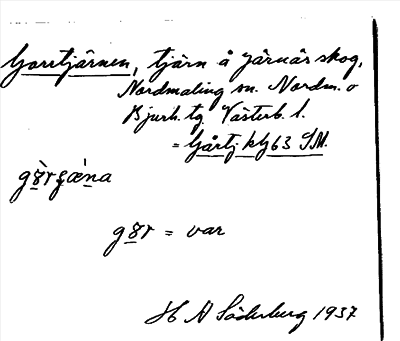 Gorrtjärnen, tjärn å Järnäs skog,
Nordmaling sn. Nordm. o
Bjurh. tg. Västerb. l.
= Gårtj. kbl 63 SM.
g
gȣr = var
H A Söderberg 1937